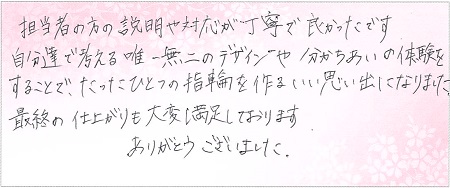 担当者の方の説明や対応が丁寧で良かったです
自分達で考える唯一無二のデザインや分かちあいの体験を
することで、たったひとつの指輪を作るいい思い出になりました
最終の仕上がりも大変満足しております
ありがとうございました。